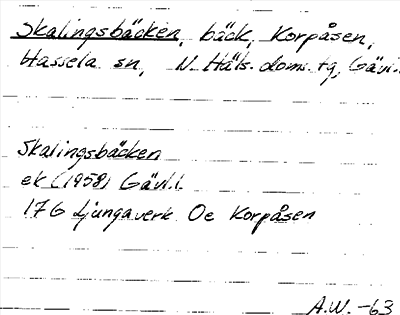 Skalingsbäcken, bäck, Korpåsen,
Hassela sn, N. Häls. doms. tg, Gävl.
Skalingsbäcken
ek (1958) Gävl.l.
17G Ljungaverk Oe Korpåsen
A.W. -63